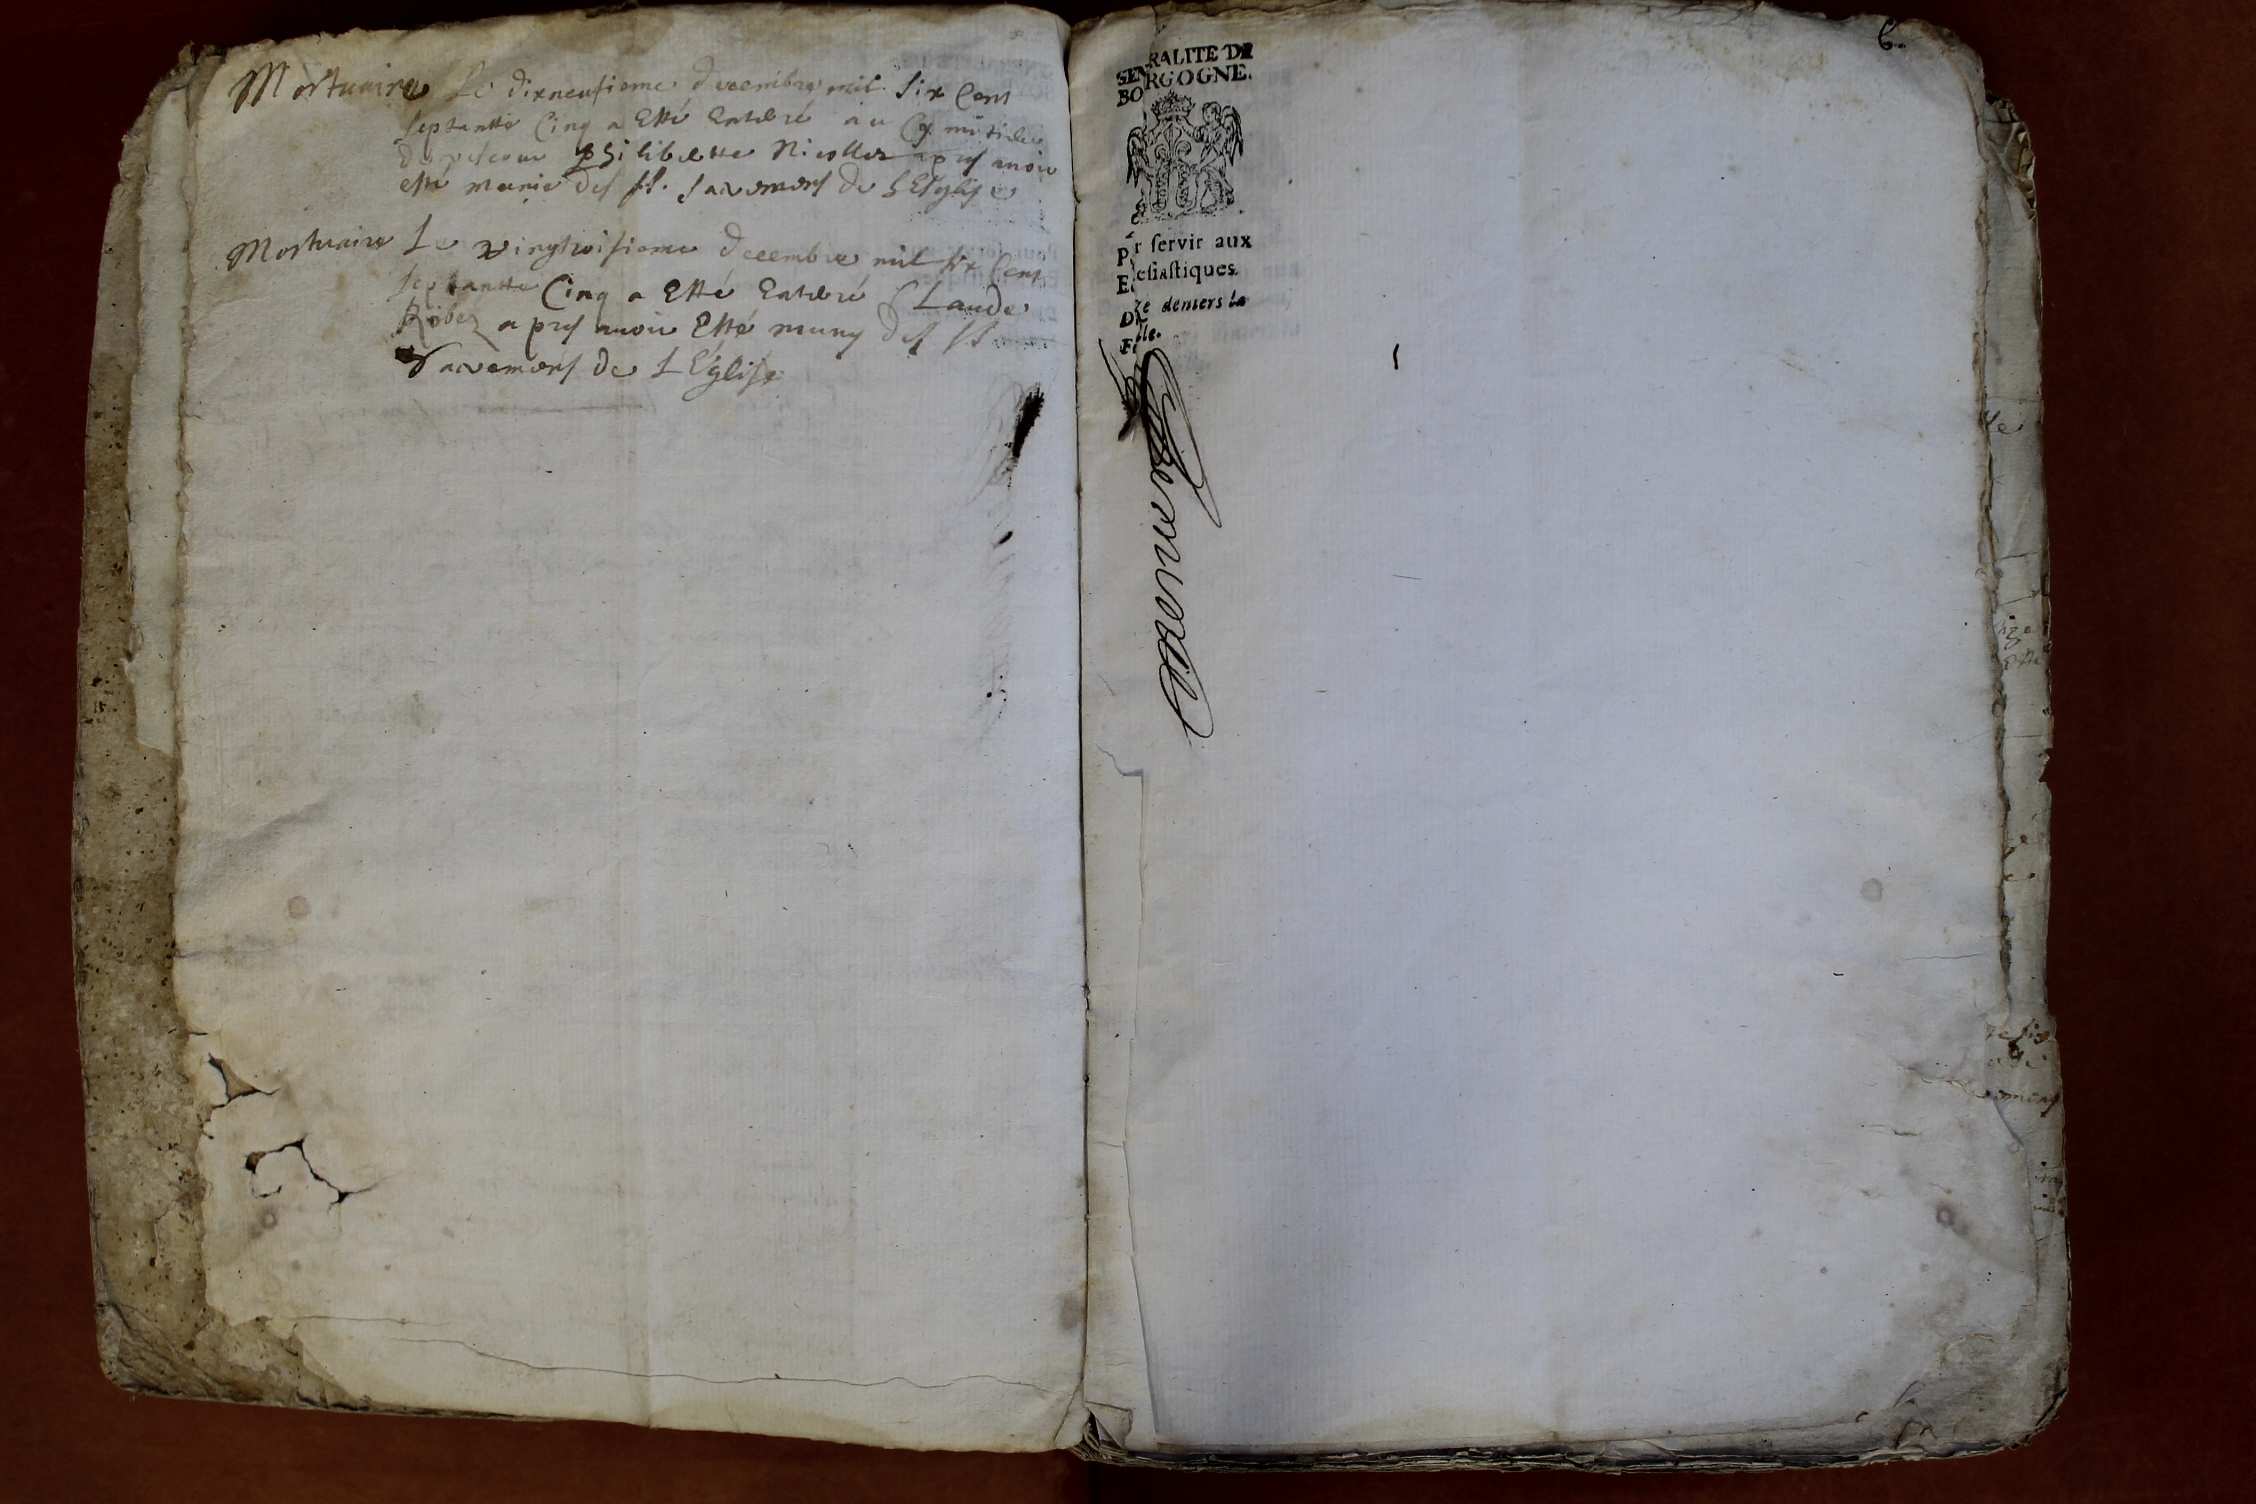 Mortuaire Le dixneufieme decembre mil six Cent
septantte Cinq a Esté Enteré au Cymitiere
Philibertte Nicollez apres auoir
esté munie des ss. sacremens de LEglise
Mortuaire Le vingtroisieme decembre mil six Cent
septantte Cinq a Esté Enteré Claude
Robez apres auoir Esté muny des ss
Sacremens de LEglise
6.
GENERALITE DE
BORGOGNE.
Pr servir aux
Ecclesiastiques.
deniers la